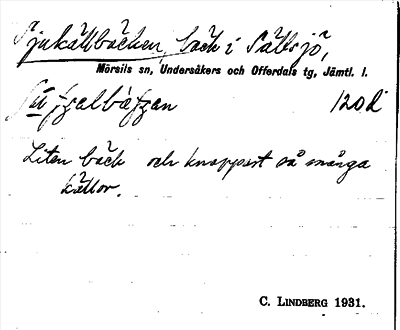 Sjukällbäcken, bäck i Sällsjö,
Mörsils sn, Undersåkers och Offerdals tg, Jämtl. l.
120 d
Liten bäck och knappast så många
källor.
C. LINDBERG 1931.